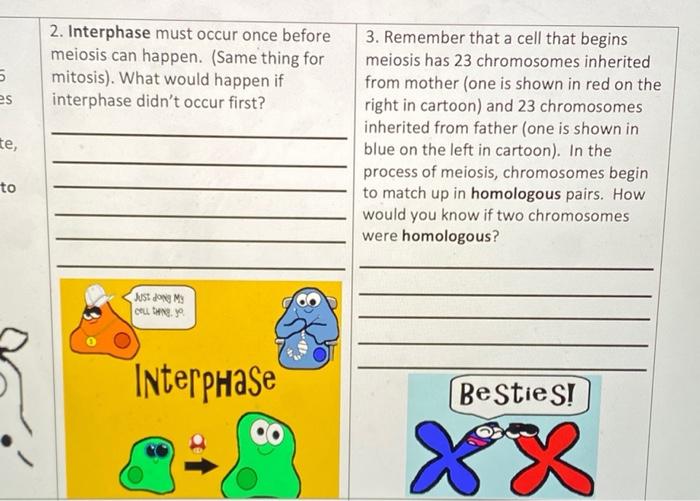 5
es
te,
to
2. Interphase must occur once before
meiosis can happen. (Same thing for
mitosis). What would happen if
interphase didn't occur first?
JUST doNg My
CELL tHiNg, yo.
1
INterPHaSe
3. Remember that a cell that begins
meiosis has 23 chromosomes inherited
from mother (one is shown in red on the
right in cartoon) and 23 chromosomes
inherited from father (one is shown in
blue on the left in cartoon). In the
process of meiosis, chromosomes begin
to match up in homologous pairs. How
would you know if two chromosomes
were homologous?
BeStieS!